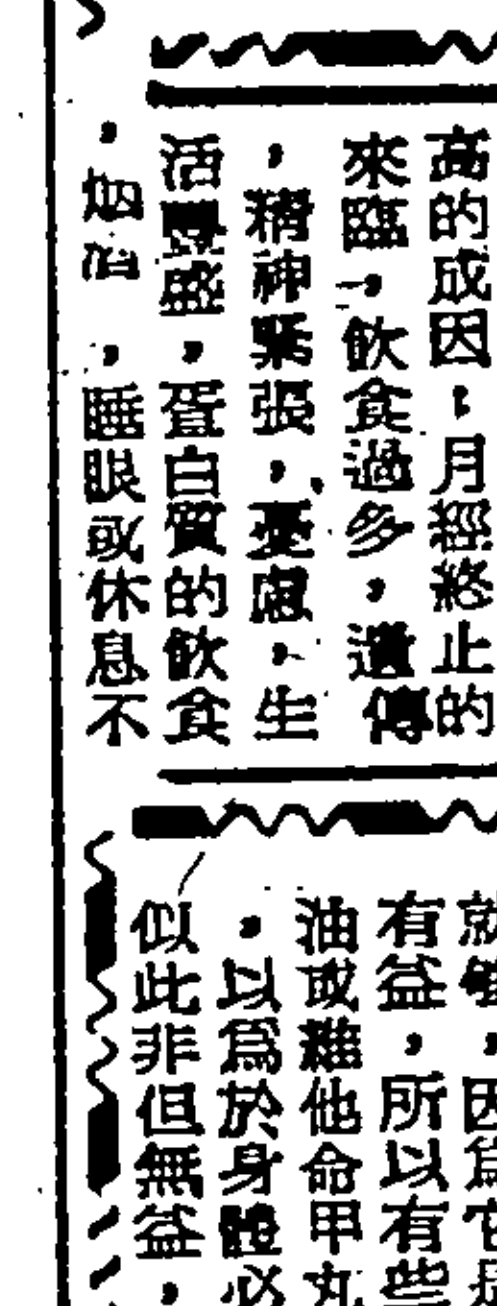 高的成因：月經終止的
來臨，飲食過多，遺傳
，精神緊張，憂慮，生
活豐盛，蛋白質的飲食
，烟酒，睡眠或休息不
就會，因爲它是
有益，所以有些
油或維他命甲丸
，以爲於身體必
似此非但無益，